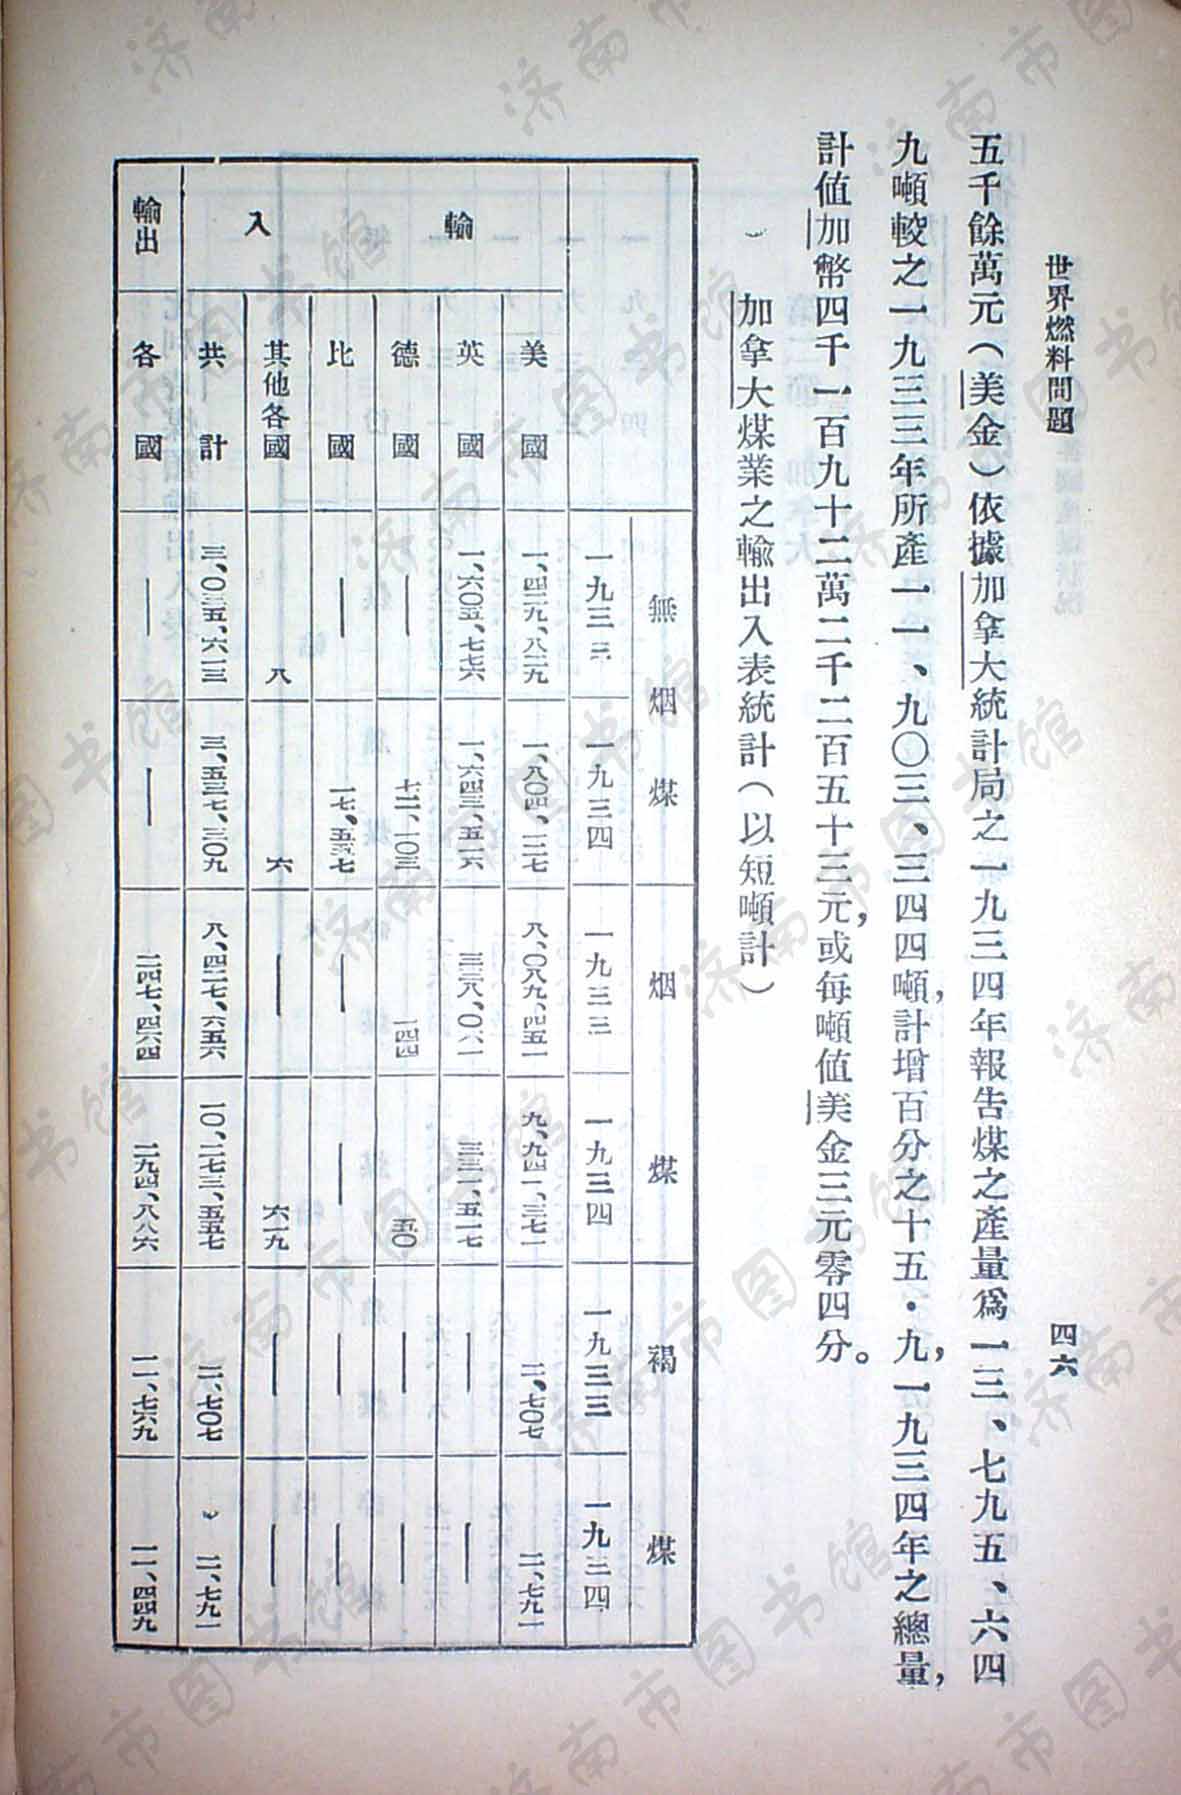 世界燃料問題
四六
五千餘萬元（美金）依據加拿大統計局之一九三四年報告煤之產量爲一三、七九五、六四
九噸較之一九三三年所產一一、九〇三、三四四噸，計增百分之十五·九，一九三四年之總量，
計値加幣四千一百九十二萬二千二百五十三元，或每噸値美金三元零四分。
加拿大煤業之輸出入表統計（以短噸計）
無烟煤
烟煤
褐煤
一九三三
一九三四
一九三三
一九三四
一九三三
一九三四
輸入
美國
一、四二九、八二九
一、八〇四、一二七
八、〇八九、四五一
九、九四一、三七一
二、七〇七
二、七九一
英國
一、六〇五、七七六
一、六四三、五一六
三三八、〇六一
三三一、五一七
—
—
德國
—
七二、一〇三
一四四
五〇
—
—
比國
—
一七、五五七
—
—
—
—
其他各國
八
六
—
六一九
—
—
共計
三、〇三五、六一三
三、五三七、三〇九
八、四二七、六五六
一〇、二七三、五五七
二、七〇七
二、七九一
輸出
各國
—
—
二四七、四六四
二九四、八八六
一一、七六九
一一、四四九
济南市图书馆